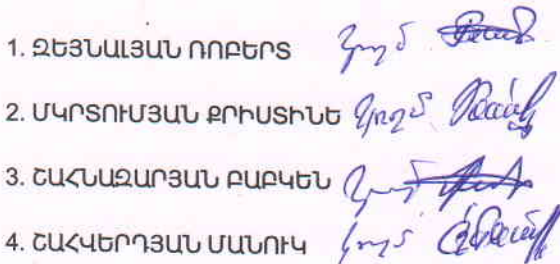 1. ԶԵՅՆԱԼՅԱՆ ՌՈԲԵՐՏ կողմ
2. ՄԿՐՏՈՒՄՅԱՆ ՔՐԻՍՏԻՆԵ կողմ
3. ՇԱՀՆԱԶԱՐՅԱՆ ԲԱԲԿԵՆ կողմ
4. ՇԱՀՎԵՐԴՅԱՆ ՄԱՆՈՒԿ կողմ